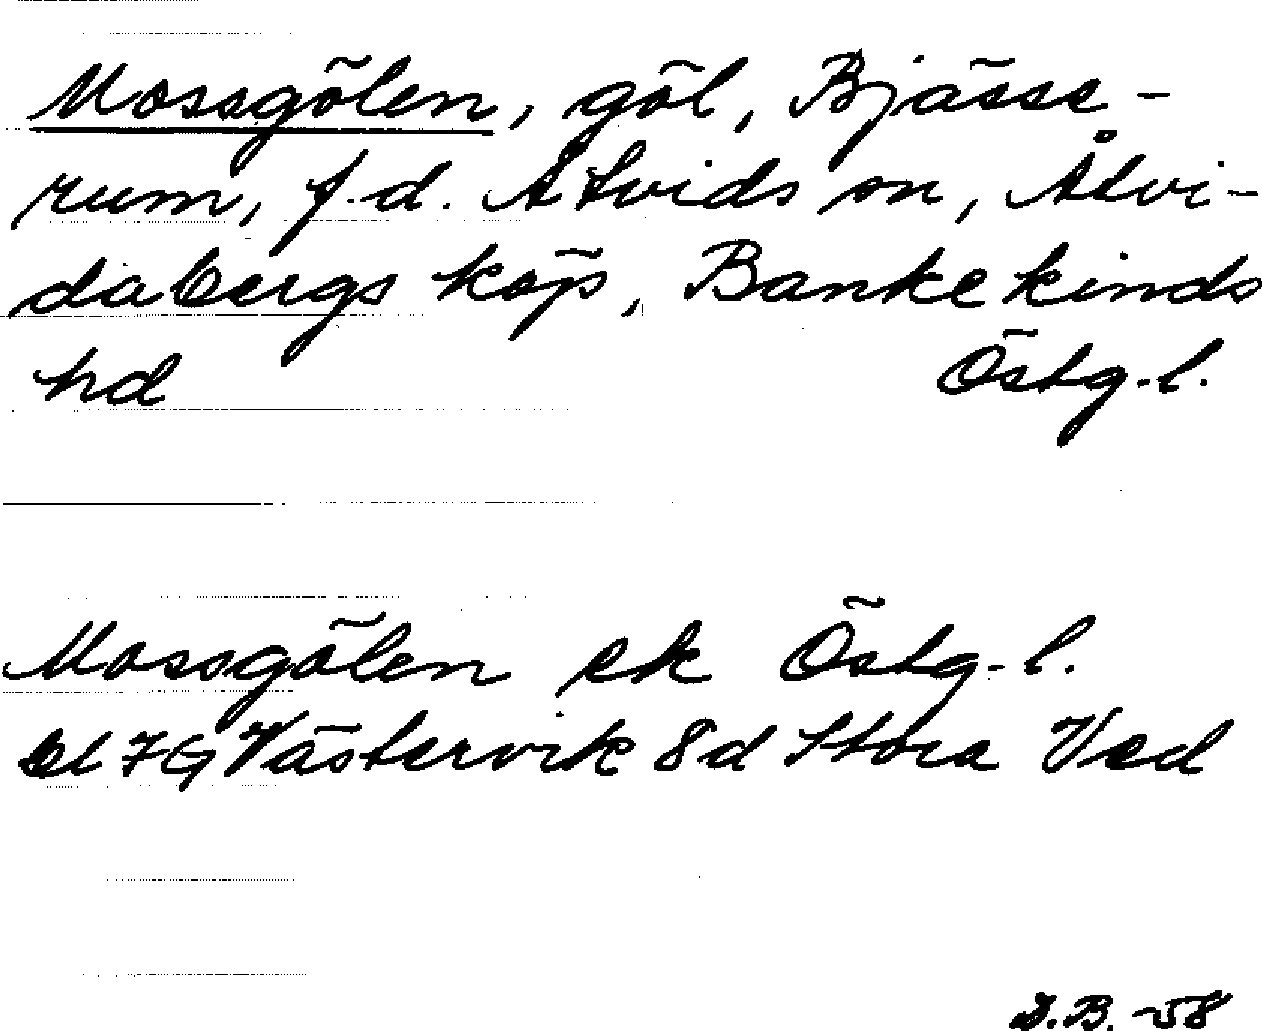 Mossgölen, göl, Bjässe-
rum, f.d. Åtvids sn, Åtvi-
dabergs köp, Bankekinds
hd Östg.l.
Mossgölen ek Östg.l.
bl 7G Västervik 8d Stora Ved
S.B. -58